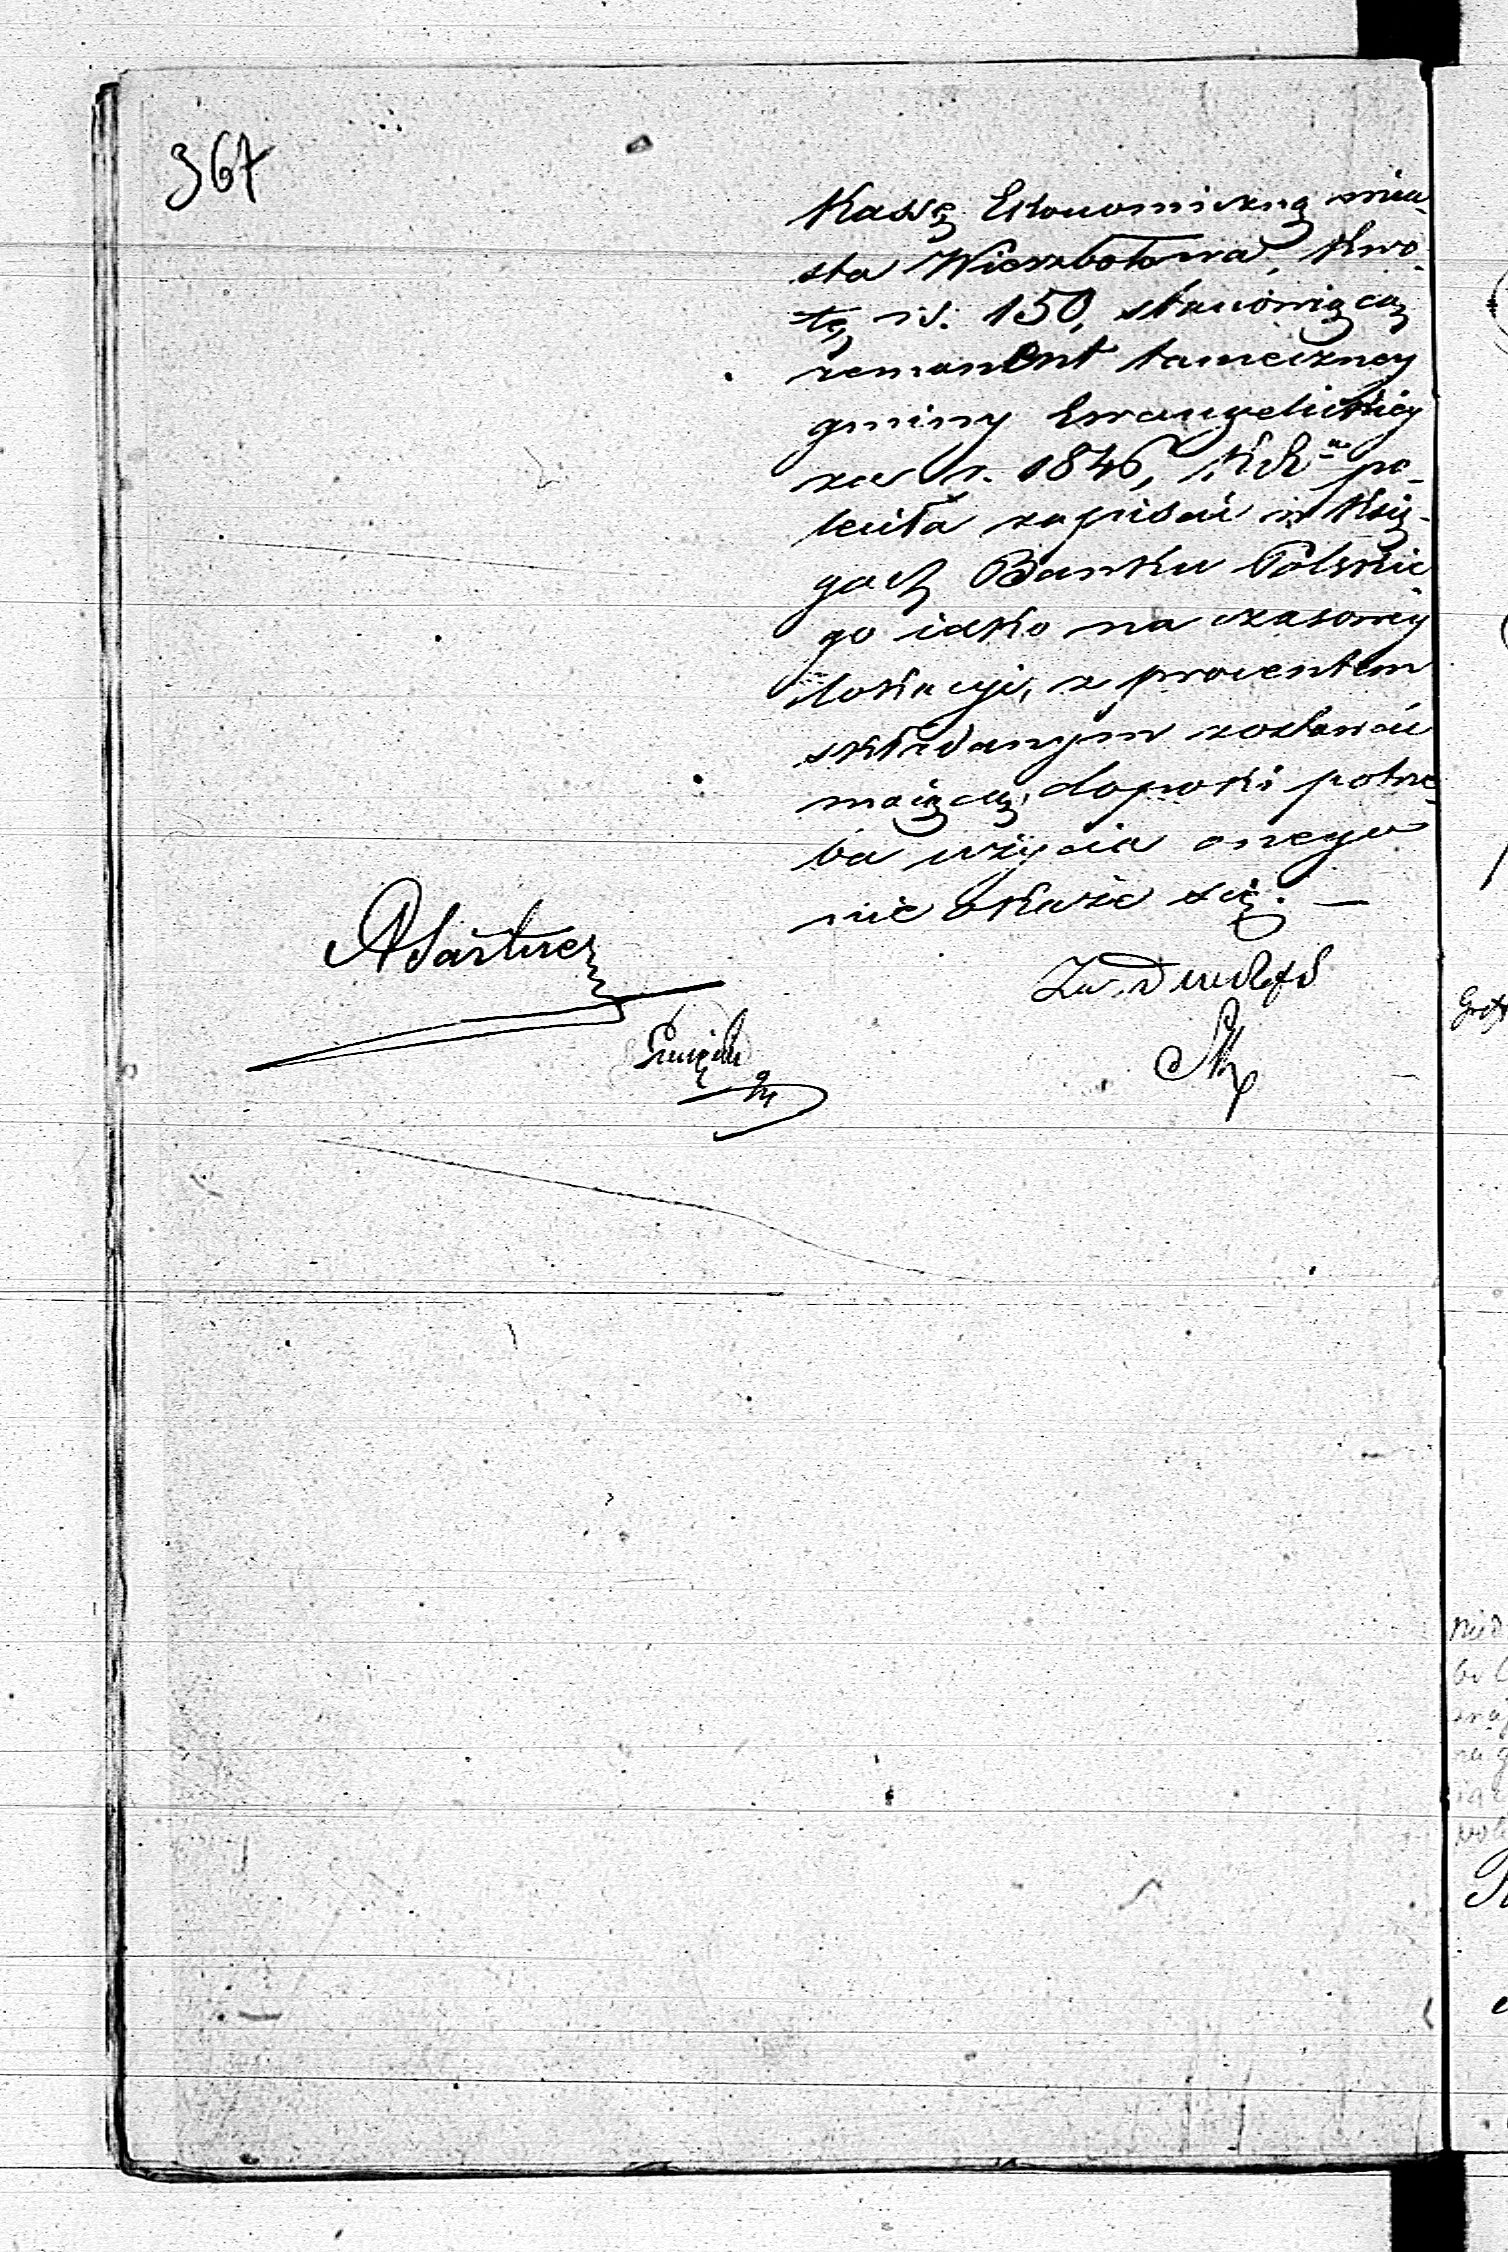 367
Kassę Ekonomiczną mia-
sta Wierzbołowa, kwo-
tę rs. 150, stanowiącą
remanent tameczney
gminy Ewangelickiey
za r. 1846, KR po-
leciła zapisać w Księ-
gach Banku Polskie-
go iako na czasowey
lokacyi, z procentem
składanym zostawać
maiącą, dopoki potrze-
ba użycia onego
nie okaże się. —